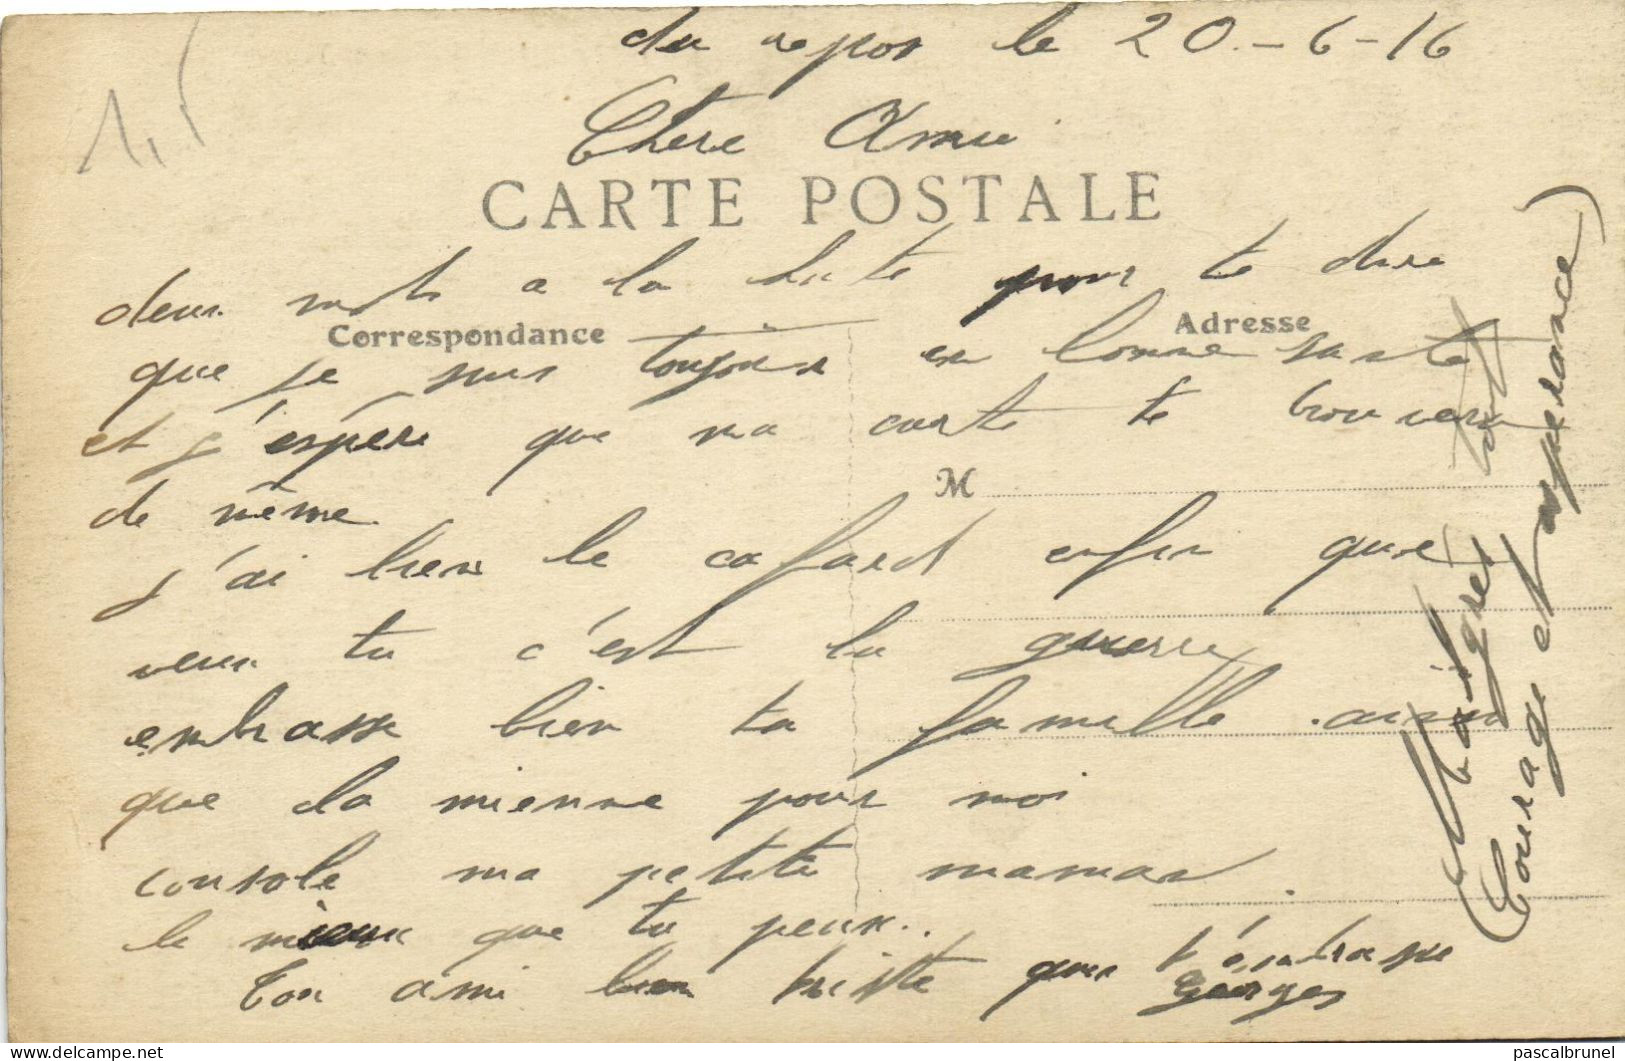 du repos le 20-6-16
1,5
Chere Amie
CARTE POSTALE
deux mots a la hate pour te dire
Correspondance
Adresse
que je suis toujours en bonne sante
et j'éspére que ma carte te trouvera
M
de même.
j'ai bien le cafard enfin que
veux tu c'est la guerre
embrasse bien ta famille ainsi
que la mienne pour moi
console ma petite maman.
le mieux que tu peux..
Ton ami bien triste qui t'émbrasse
Georges
Malgrer tout
(Courage et esperance)
pascalbrunel
delcampe.net